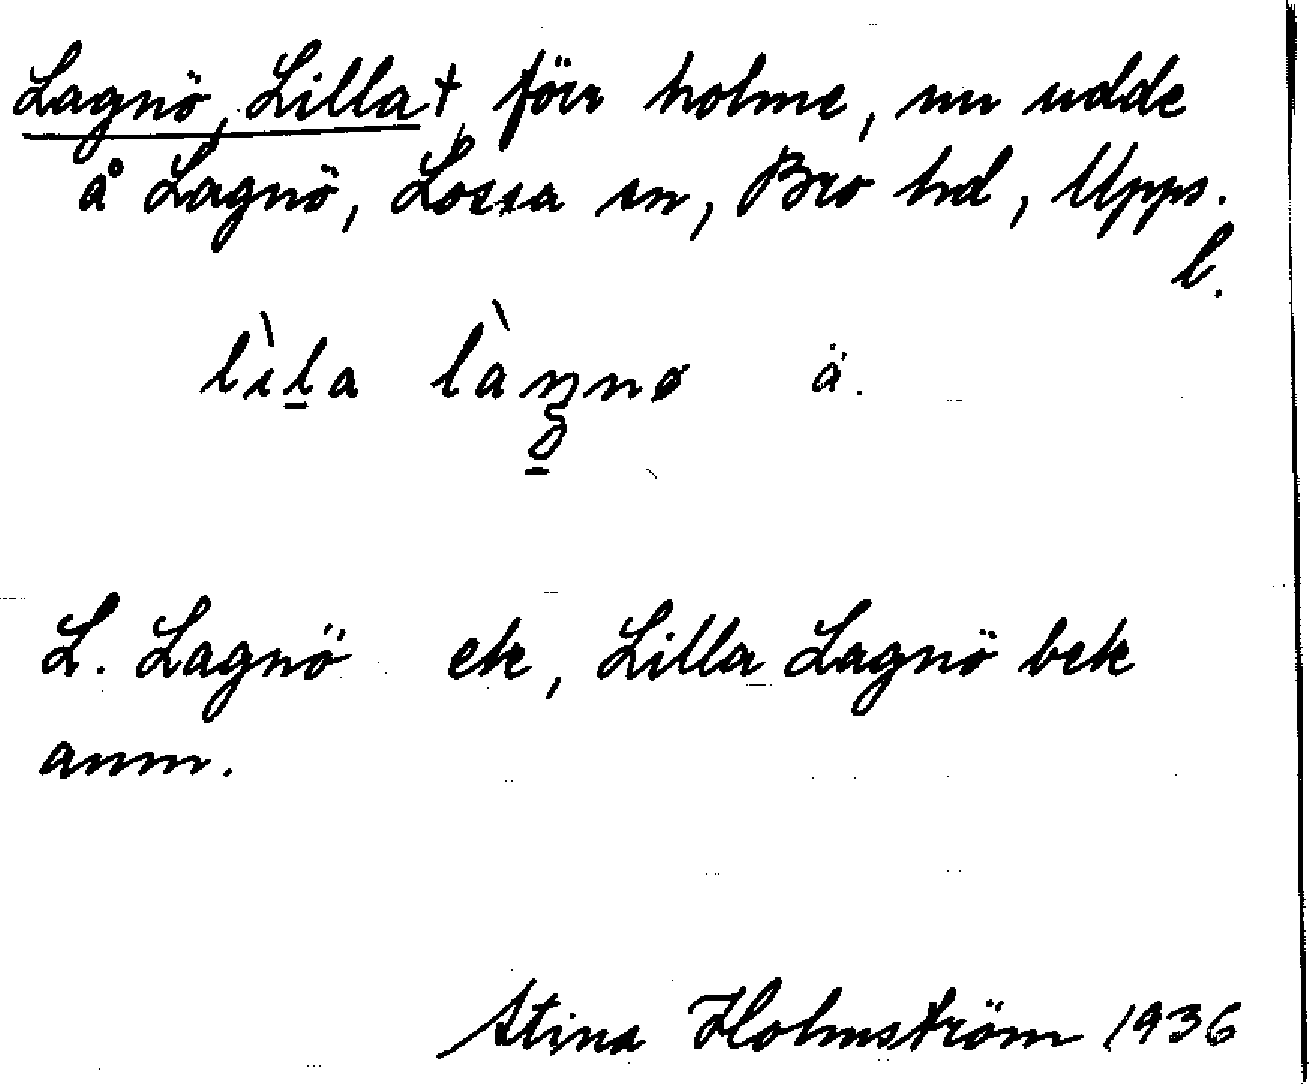 Lagnö, Lilla †, förr holme, nu udde
å Lagnö, Lossa sn, Bro hd, Upps.
l.
lìla làŋnø ä.
g
L. Lagnö ek, Lilla Lagnö bek
anm.
Stina Holmström 1936